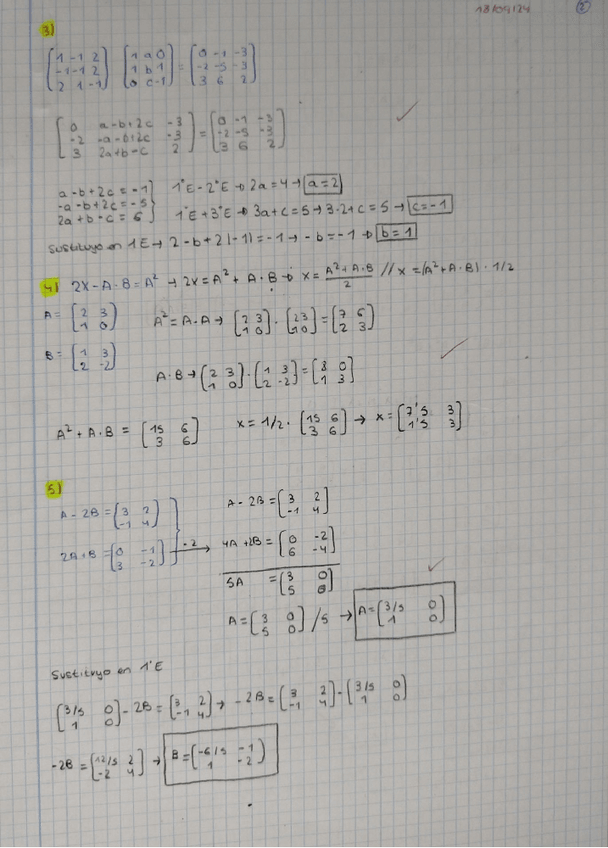 18/09/24 2
3)
[1 -1 2; -1 -1 2; 2 1 -1] [1 a 0; 1 b 1; 0 c -1] = [0 -1 -3; -2 -5 -3; 3 6 2]
[0 a-b+2c -3; -2 -a-b+2c -3; 3 2a+b-c 2] = [0 -1 -3; -2 -5 -3; 3 6 2]
a-b+2c = -1
-a-b+2c = -5
2a+b-c = 6
1ªE - 2ªE → 2a = 4 → a = 2
1ªE + 3ªE → 3a + c = 5 → 3·2 + c = 5 → c = -1
Sustituyo en 1E → 2 - b + 2(-1) = -1 → -b = -1 → b = 1
4) 2X - A·B = A² → 2X = A² + A·B → X = A² + A·B / 2 // X = (A² + A·B) · 1/2
A = [2 3; 1 0] A² = A·A → [2 3; 1 0] · [2 3; 1 0] = [7 6; 2 3]
B = [1 3; 2 -2]
A·B → [2 3; 1 0] · [1 3; 2 -2] = [8 0; 1 3]
A² + A·B = [15 6; 3 6] X = 1/2 · [15 6; 3 6] → X = [7'5 3; 1'5 3]
5)
A - 2B = [3 2; -1 4]
2A + B = [0 -1; 3 -2] ·2 →
A - 2B = [3 2; -1 4]
4A + 2B = [0 -2; 6 -4]
5A = [3 0; 5 0]
A = [3 0; 5 0] /5 → A = [3/5 0; 1 0]
Sustituyo en 1ªE
[3/5 0; 1 0] - 2B = [3 2; -1 4] → -2B = [3 2; -1 4] - [3/5 0; 1 0]
-2B = [12/5 2; -2 4] → B = [-6/5 -1; 1 -2]